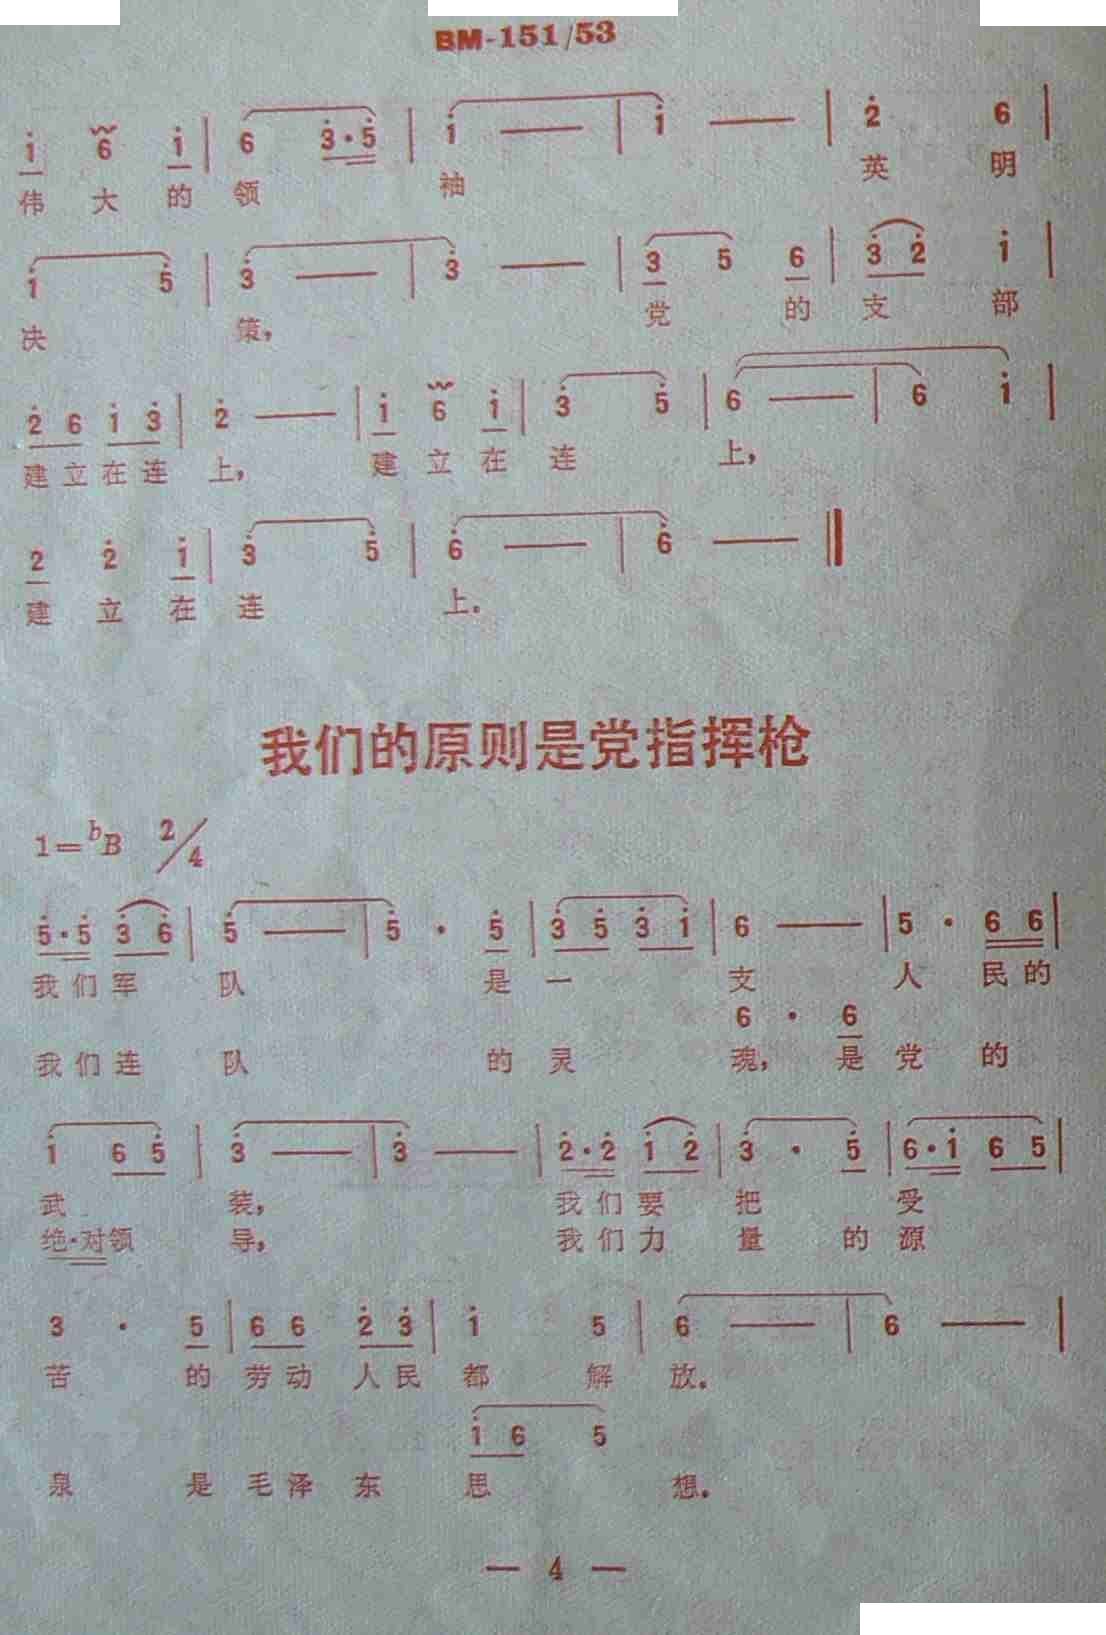 BM-151/53
1 6 1 | 6 3·5 | 1 — | 1 — | 2 6 |
伟大的领袖英明
1 5 | 3 — | 3 — | 3 5 6 | 3 2 1 |
决策，党的支部
2 6 1 3 | 2 — | 1 6 1 | 3 5 | 6 — | 6 1 |
建立在连上，建立在连上，
2 2 1 | 3 5 | 6 — | 6 — ‖
建立在连上。
我们的原则是党指挥枪
1=ᵇB 2/4
5·5 3 6 | 5 — | 5 · 5 | 3 5 3 1 | 6 — | 5 · 6 6 |
我们军队是一支人民的
6 · 6
我们连队的灵魂，是党的
1 6 5 | 3 — | 3 — | 2·2 1 2 | 3 · 5 | 6·1 6 5 |
武装，我们要把受
绝·对领导，我们力量的源
3 · 5 | 6 6 2 3 | 1 5 | 6 — | 6 — |
苦的劳动人民都解放。
1 6 5
泉是毛泽东思想。
— 4 —